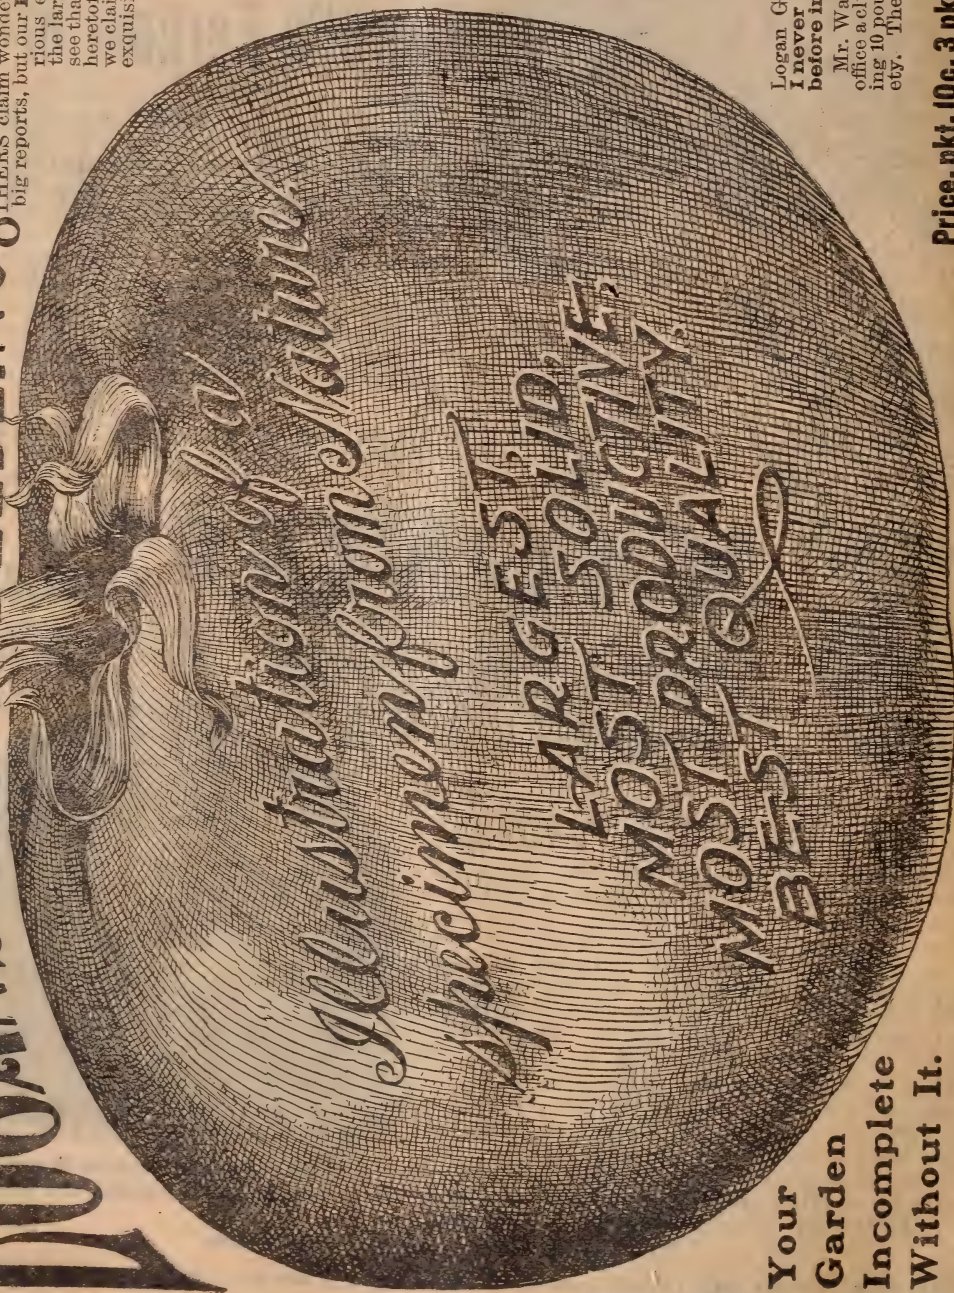 OTHERS claim wonde
big reports, but our
rious
the lar
see tha
heretof
we clai
exquisi
Illustration of a
specimen from Nature
LARGEST,
MOST SOLID,
MOST PRODUCTIVE,
BEST QUALITY.
Your
Garden
Incomplete
Without It.
Logan G
I never
before in
Mr. Wa
office a cl
ing 10 pou
ety. The
Price, pkt. 10c, 3 pk